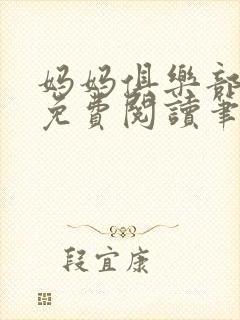 妈妈俱樂部
免費閱讀筆
段宜康